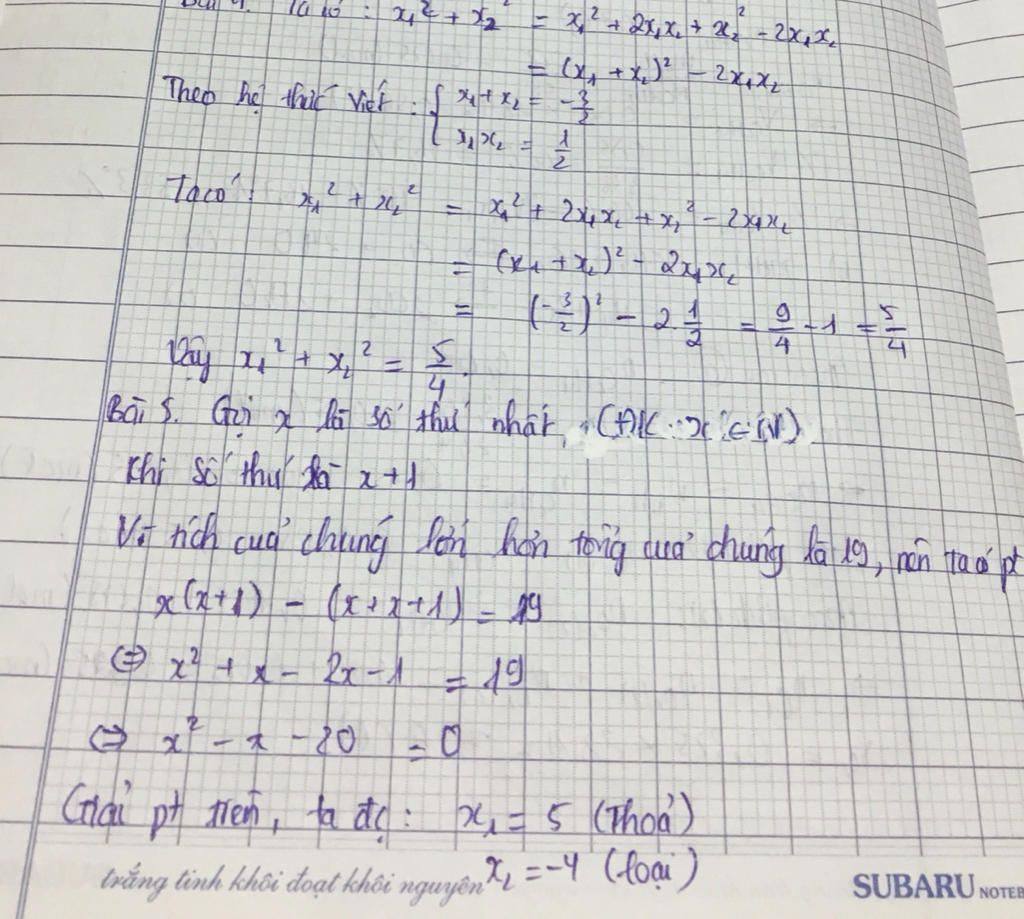 Bài 4. Ta có : x₁² + x₂² = x₁² + 2x₁x₂ + x₂² - 2x₁x₂
= (x₁ + x₂)² - 2x₁x₂
Theo hệ thức Viét : { x₁ + x₂ = -3/2
x₁x₂ = 1/2
Ta có : x₁² + x₂² = x₁² + 2x₁x₂ + x₂² - 2x₁x₂
= (x₁ + x₂)² - 2x₁x₂
= (-3/2)² - 2 1/2 = 9/4 - 1 = 5/4
Vậy x₁² + x₂² = 5/4.
Bài 5. Gọi x là số thứ nhất, (ĐK: x ∈ N)
Khi số thứ là x+1
Vì tích cuả chúng lớn hơn tổng cuả chúng là 19, nên ta có pt
x(x+1) - (x+x+1) = 19
⇔ x² + x - 2x - 1 = 19
⇔ x² - x - 20 = 0
Giải pt trên, ta đc : x₁ = 5 (Thoả)
x₂ = -4 (loại)
trắng tinh khôi đoạt khôi nguyên
SUBARU NOTEB